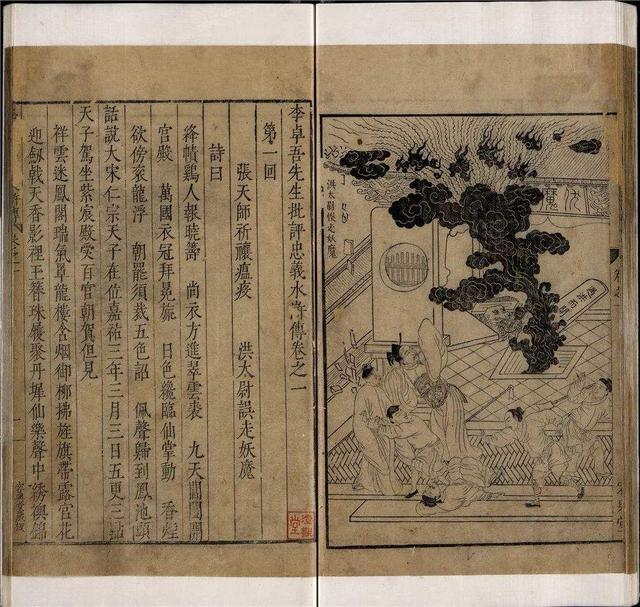 洪太尉悞走妖魔
伏魔
遇洪而開
李卓吾先生批評忠義水滸傳卷之一
第一回
張天師祈禳瘟疫 洪太尉誤走妖魔
詩曰
絳幘鷄人報曉籌 尚衣方進翠雲裘 九天閶闔開
宮殿 萬國衣冠拜冕旒 日色纔臨仙掌動 香烟
欲傍衮龍浮 朝罷須裁五色詔 佩聲歸到鳳池頭
話說大宋仁宗天子在位嘉祐三年三月三日五更三點
天子駕坐紫宸殿受百官朝賀但見
祥雲迷鳳閣瑞氣罩龍樓含烟御柳拂旌旗帶露宮花
迎劔戟天香影裡玉簪珠履聚丹墀仙樂聲中綉襖錦